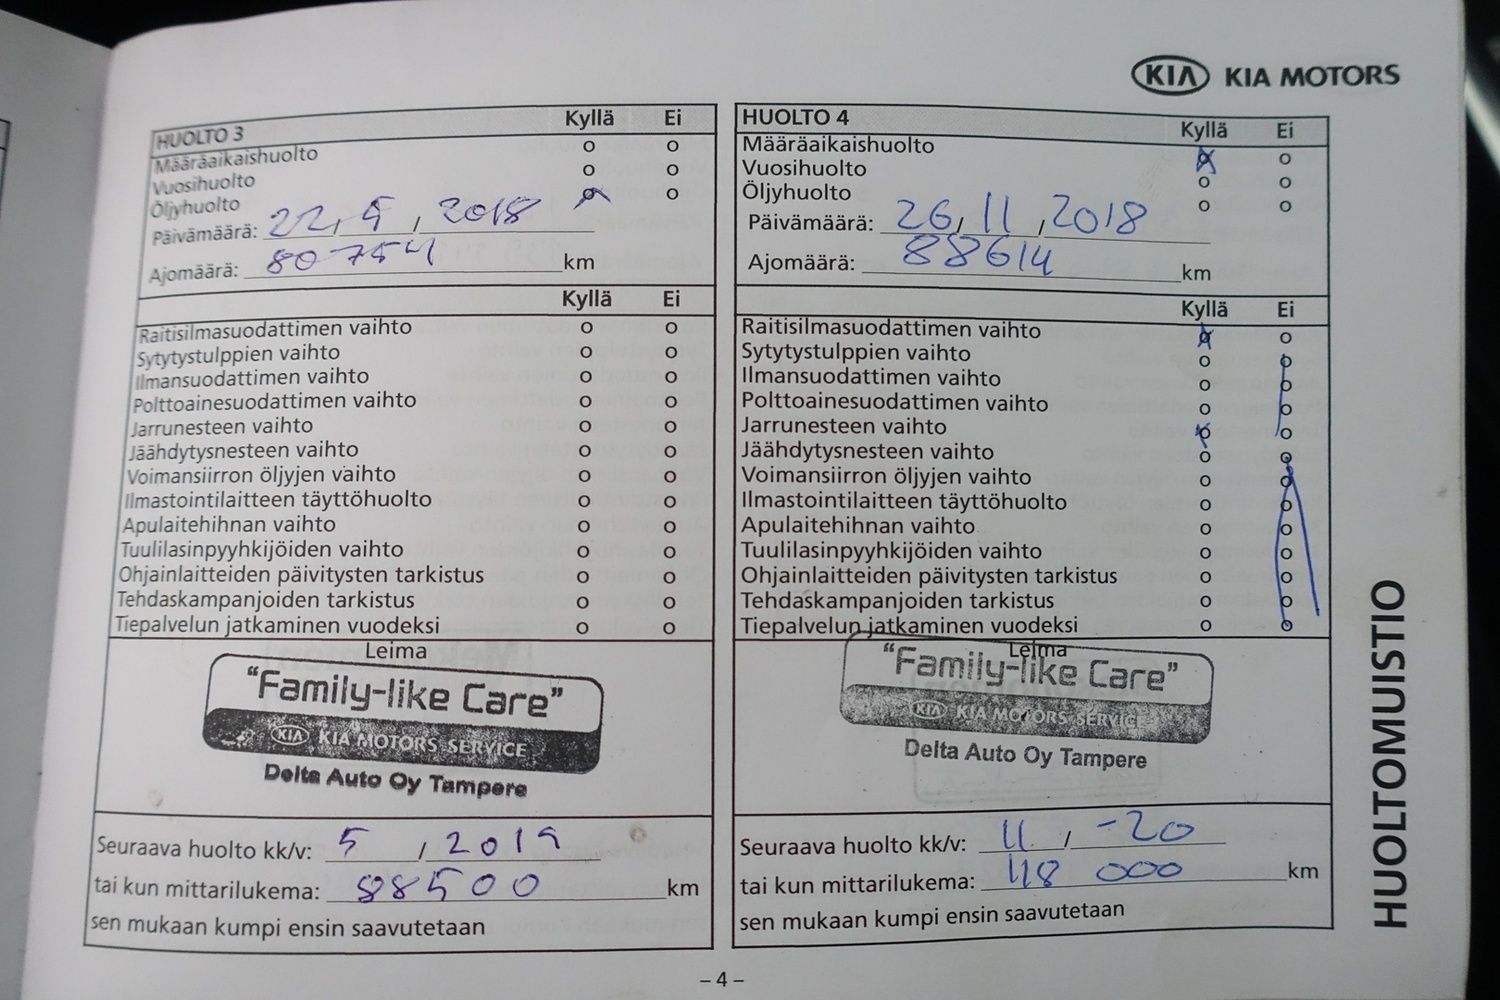 KIA KIA MOTORS
HUOLTO 3 Kyllä Ei
Määräaikaishuolto o o
Vuosihuolto o o
Öljyhuolto o o
Päivämäärä: 22, 5, 2018
Ajomäärä: 80754 km
Kyllä Ei
Raitisilmasuodattimen vaihto o o
Sytytystulppien vaihto o o
Ilmansuodattimen vaihto o o
Polttoainesuodattimen vaihto o o
Jarrunesteen vaihto o o
Jäähdytysnesteen vaihto o o
Voimansiirron öljyjen vaihto o o
Ilmastointilaitteen täyttöhuolto o o
Apulaitehihnan vaihto o o
Tuulilasinpyyhkijöiden vaihto o o
Ohjainlaitteiden päivitysten tarkistus o o
Tehdaskampanjoiden tarkistus o o
Tiepalvelun jatkaminen vuodeksi o o
Leima
"Family-like Care"
KIA KIA MOTORS SERVICE
Delta Auto Oy Tampere
Seuraava huolto kk/v: 5 / 2019
tai kun mittarilukema: 88500 km
sen mukaan kumpi ensin saavutetaan
HUOLTO 4 Kyllä Ei
Määräaikaishuolto o o
Vuosihuolto o o
Öljyhuolto o o
Päivämäärä: 26, 11, 2018
Ajomäärä: 88614 km
Kyllä Ei
Raitisilmasuodattimen vaihto o o
Sytytystulppien vaihto o o
Ilmansuodattimen vaihto o o
Polttoainesuodattimen vaihto o o
Jarrunesteen vaihto o o
Jäähdytysnesteen vaihto o o
Voimansiirron öljyjen vaihto o o
Ilmastointilaitteen täyttöhuolto o o
Apulaitehihnan vaihto o o
Tuulilasinpyyhkijöiden vaihto o o
Ohjainlaitteiden päivitysten tarkistus o o
Tehdaskampanjoiden tarkistus o o
Tiepalvelun jatkaminen vuodeksi o o
Leima
"Family-like Care"
KIA KIA MOTORS SERVICE
Delta Auto Oy Tampere
Seuraava huolto kk/v: 11 / -20
tai kun mittarilukema: 118 000 km
sen mukaan kumpi ensin saavutetaan
HUOLTOMUISTIO
– 4 –